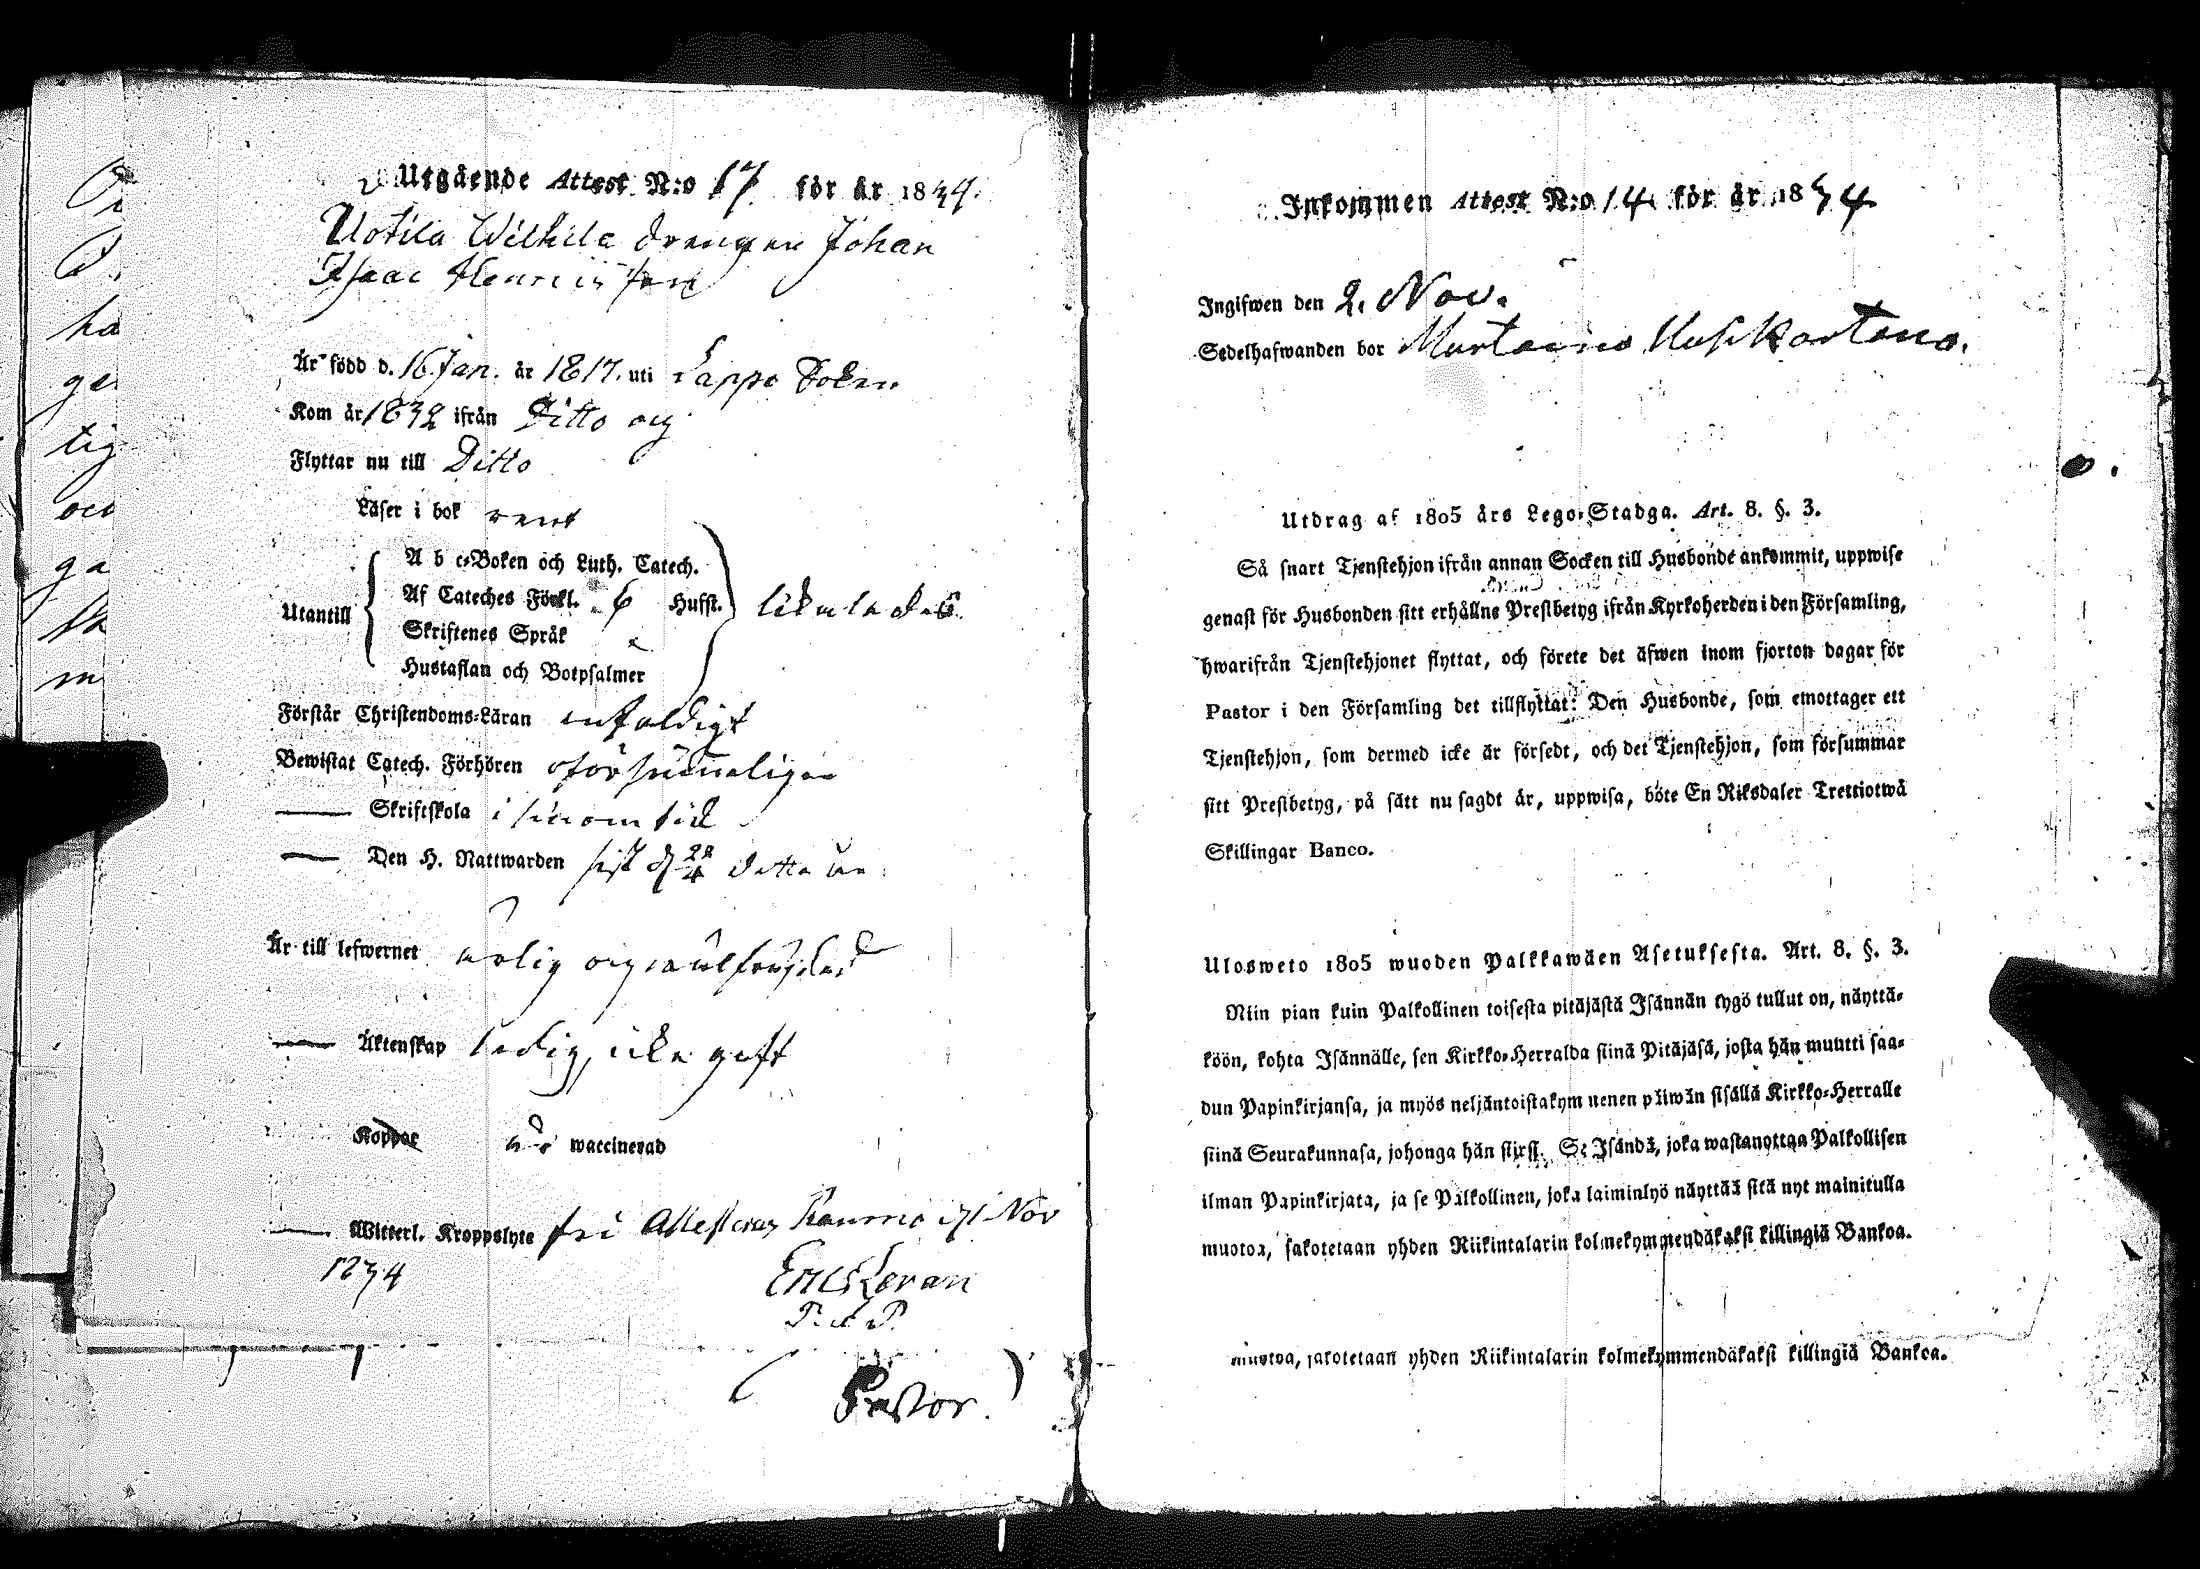 Utgående Attest N:o 17 för år 1834.
Uotila Wilhila drengen Johan
Isaac Henricsson
Är född d. 16 Jan. år 1817. uti Lappo Soken
Kom år 1832 ifrån Ditto och
Flyttar nu till Ditto
Läser i bok rent
Utantill
A b c-Boken och Luth. Catech.
Af Cateches Förkl. 6 Hufst.
Skriftenes Språk
Hustaflan och Botpsalmer
likaledes
Förstår Christendoms-Läran enfaldigt
Bewistat Catech. Förhören oförsumeligen
— Skriftskola i sinom tid
— Den H. Nattwarden sist d. detta år
Är till lefwernet ärlig och wälfrejdad
— Äktenskap ledig, icke gift
Koppor waccinerad
— Witterl. Kroppslyte fri Attesteras Raumo Nov
1834
P.
Pastor.
Inkommen Attest N:o 14. för år 1834
Ingifwen den 2. Nov.
Sedelhafwanden bor
Utdrag af 1805 års Lego-Stadga. Art. 8. §. 3.
Så snart Tjenstehjon ifrån annan Socken till Husbonde ankommit, uppwise
genast för Husbonden sitt erhållne Prestbetyg ifrån Kyrkoherden i den Församling,
hwarifrån Tjenstehjonet flyttat, och förete det äfwen inom fjorton dagar för
Pastor i den Församling det tillflyttat: Den Husbonde, som emottager ett
Tjenstehjon, som dermed icke är försedt, och det Tjenstehjon, som försummar
sitt Prestbetyg, på sätt nu sagdt är, uppwisa, böte En Riksdaler Trettiotwå
Skillingar Banco.
Ulosweto 1805 wuoden Palkkawäen Asetuksesta. Art. 8. §. 3.
Niin pian kuin Palkollinen toisesta pitäjästä Isännän tygö tullut on, näyttä-
köön, kohta Isännälle, sen Kirkko-Herralda siinä Pitäjäsä, josta hän muutti saa-
dun Papinkirjansa, ja myös neljäntoistakymmenen päiwän sisällä Kirkko-Herralle
siinä Seurakunnasa, johonga hän siirsi. Se Isändä, joka wastanottaa Palkollisen
ilman Papinkirjata, ja se Palkollinen, joka laiminlyö näyttää sitä nyt mainitulla
muotoa, sakotetaan yhden Riikintalarin kolmekymmendäkaksi killingiä Bankoa.
muotoa, sakotetaan yhden Riikintalarin kolmekymmendäkaksi killingiä Bankoa.